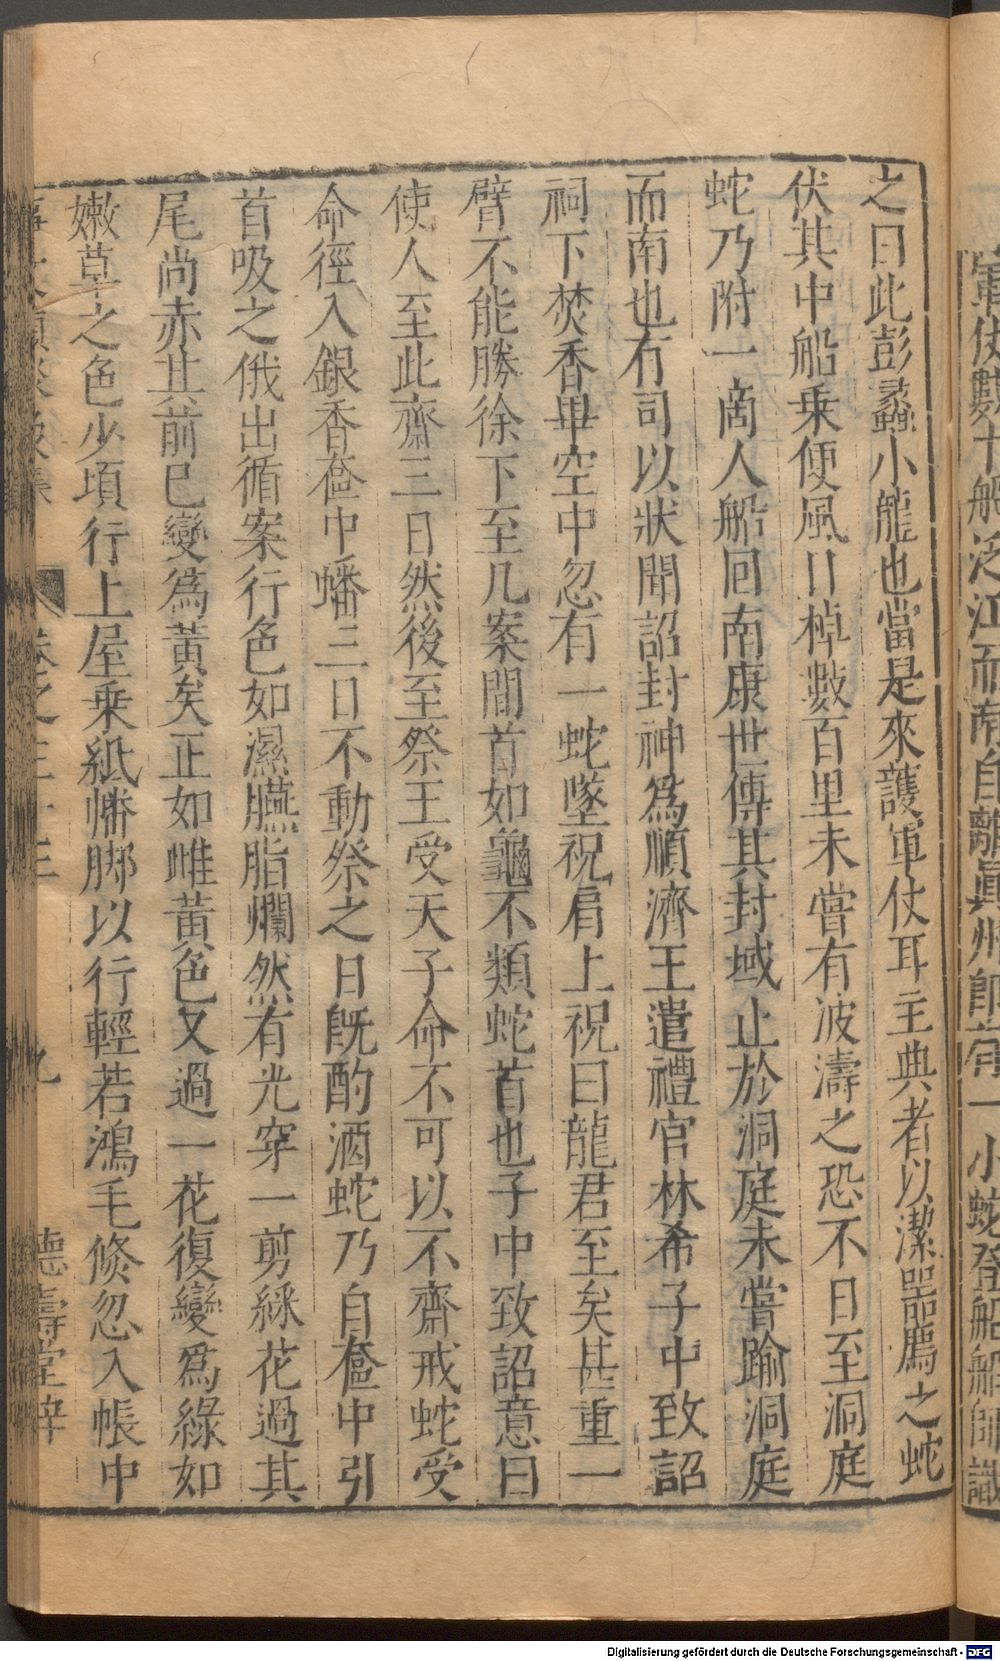 軍仗數十船泛江而南自離眞州卽有一小蛇登船船師識
之曰此彭蠡小龍也當是來護軍仗耳主典者以潔器薦之蛇
伏其中船乗便風日棹數百里未嘗有波濤之恐不日至洞庭
蛇乃附一啇人船回南康世傳其封域止於洞庭未嘗踰洞庭
而南也有司以狀聞詔封神爲順濟王遣禮官林希子中致詔
祠下焚香畢空中忽有一蛇墜祝肩上祝曰龍君至矣甚重一
臂不能勝徐下至几案間首如龜不類蛇首也子中致詔意曰
使人至此齋三日然後至祭王受天子命不可以不齋戒蛇受
命徑入銀香奩中蟠三日不動祭之日旣酌酒蛇乃自奩中引
首吸之俄出循案行色如濕臙脂爛然有光穿一剪綵花過其
尾尚赤其前已變為黃矣正如雌黃色又過一花復變爲綠如
嫩草之色少頃行上屋乗紙旛脚以行輕若鴻毛倐忽入帳中
卷之三十三 九 德壽堂梓
Digitalisierung gefördert durch die Deutsche Forschungsgemeinschaft - DFG